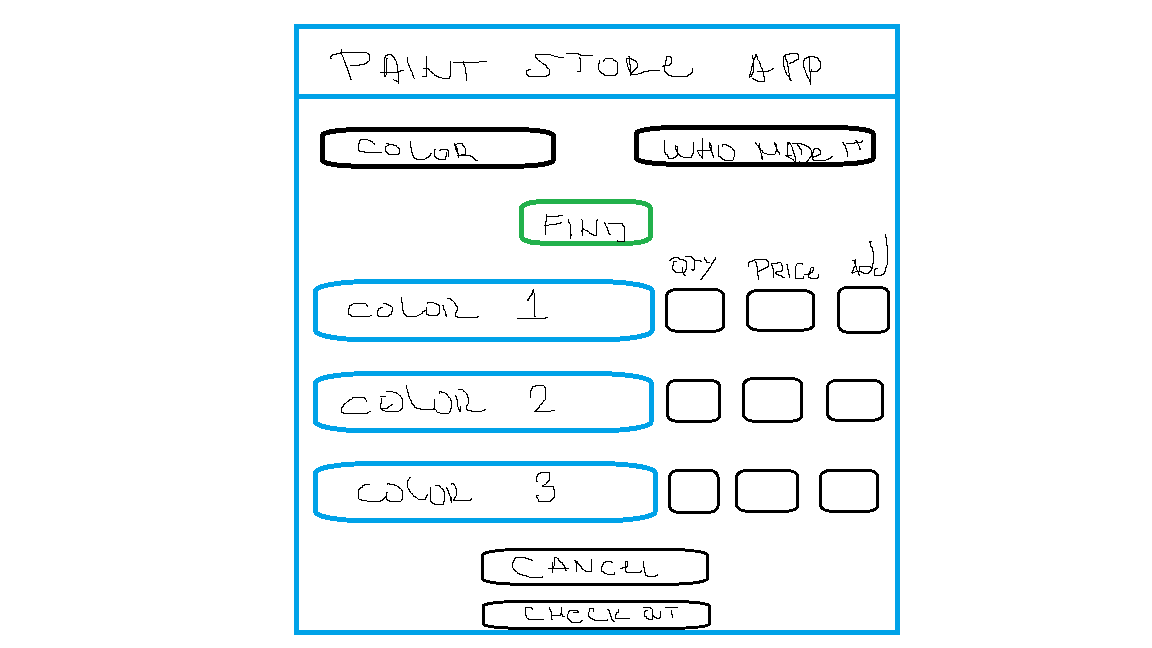 PAINT STORE APP
COLOR WHO MADE IT
FIND
QTY PRICE ADD
COLOR 1
COLOR 2
COLOR 3
CANCEL
CHECK OUT